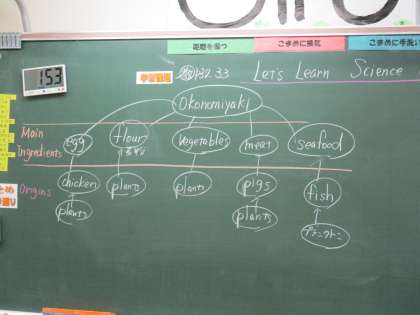 距離を保つ
こまめに換気
こまめに手洗い
153
学習課題
132 33
Let's Learn Science
Okonomiyaki
Main
Ingredients
egg
flour
vegetables
meat
seafood
Origins
chicken
plants
plants
pigs
fish
plants
plants
プランクトン